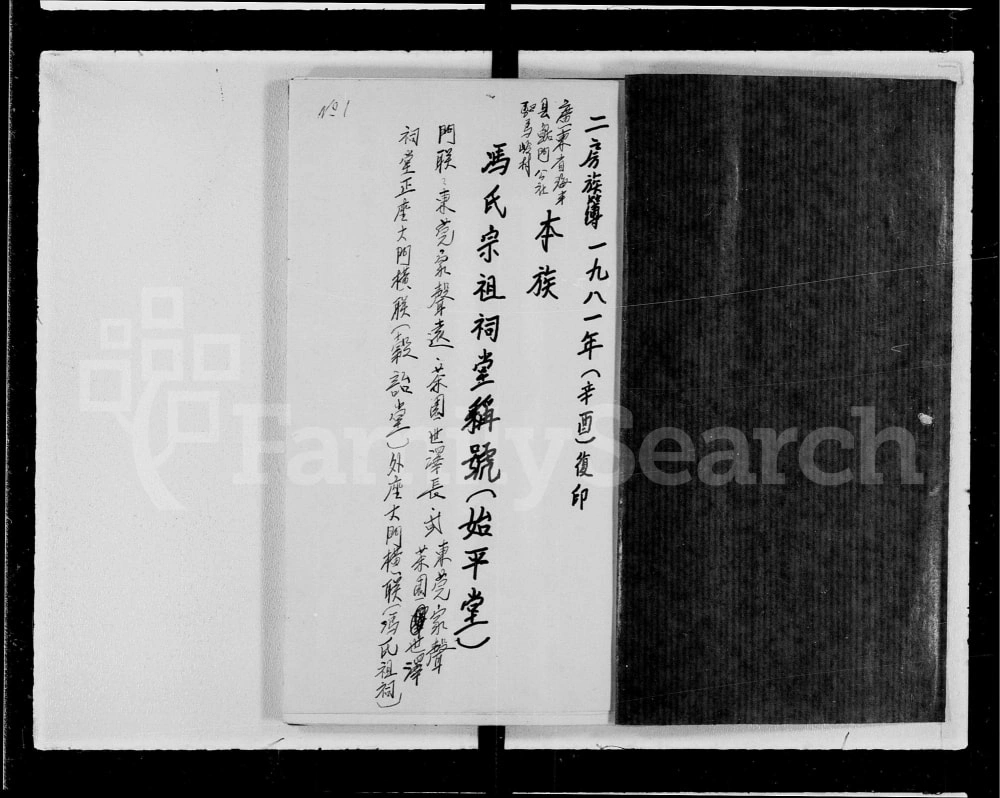 二房族簿一九八一年(辛酉)復印
廣東省海丰
县鮜門公社
駟馬岭村
本族
馮氏宗祖祠堂稱號(始平堂)
門联:東莞家聲遠:茶園世澤長:或東莞家聲
茶園世澤
祠堂正座大門横联(穀詒堂)外座大門横联(馮氏祖祠)
No 1
FamilySearch